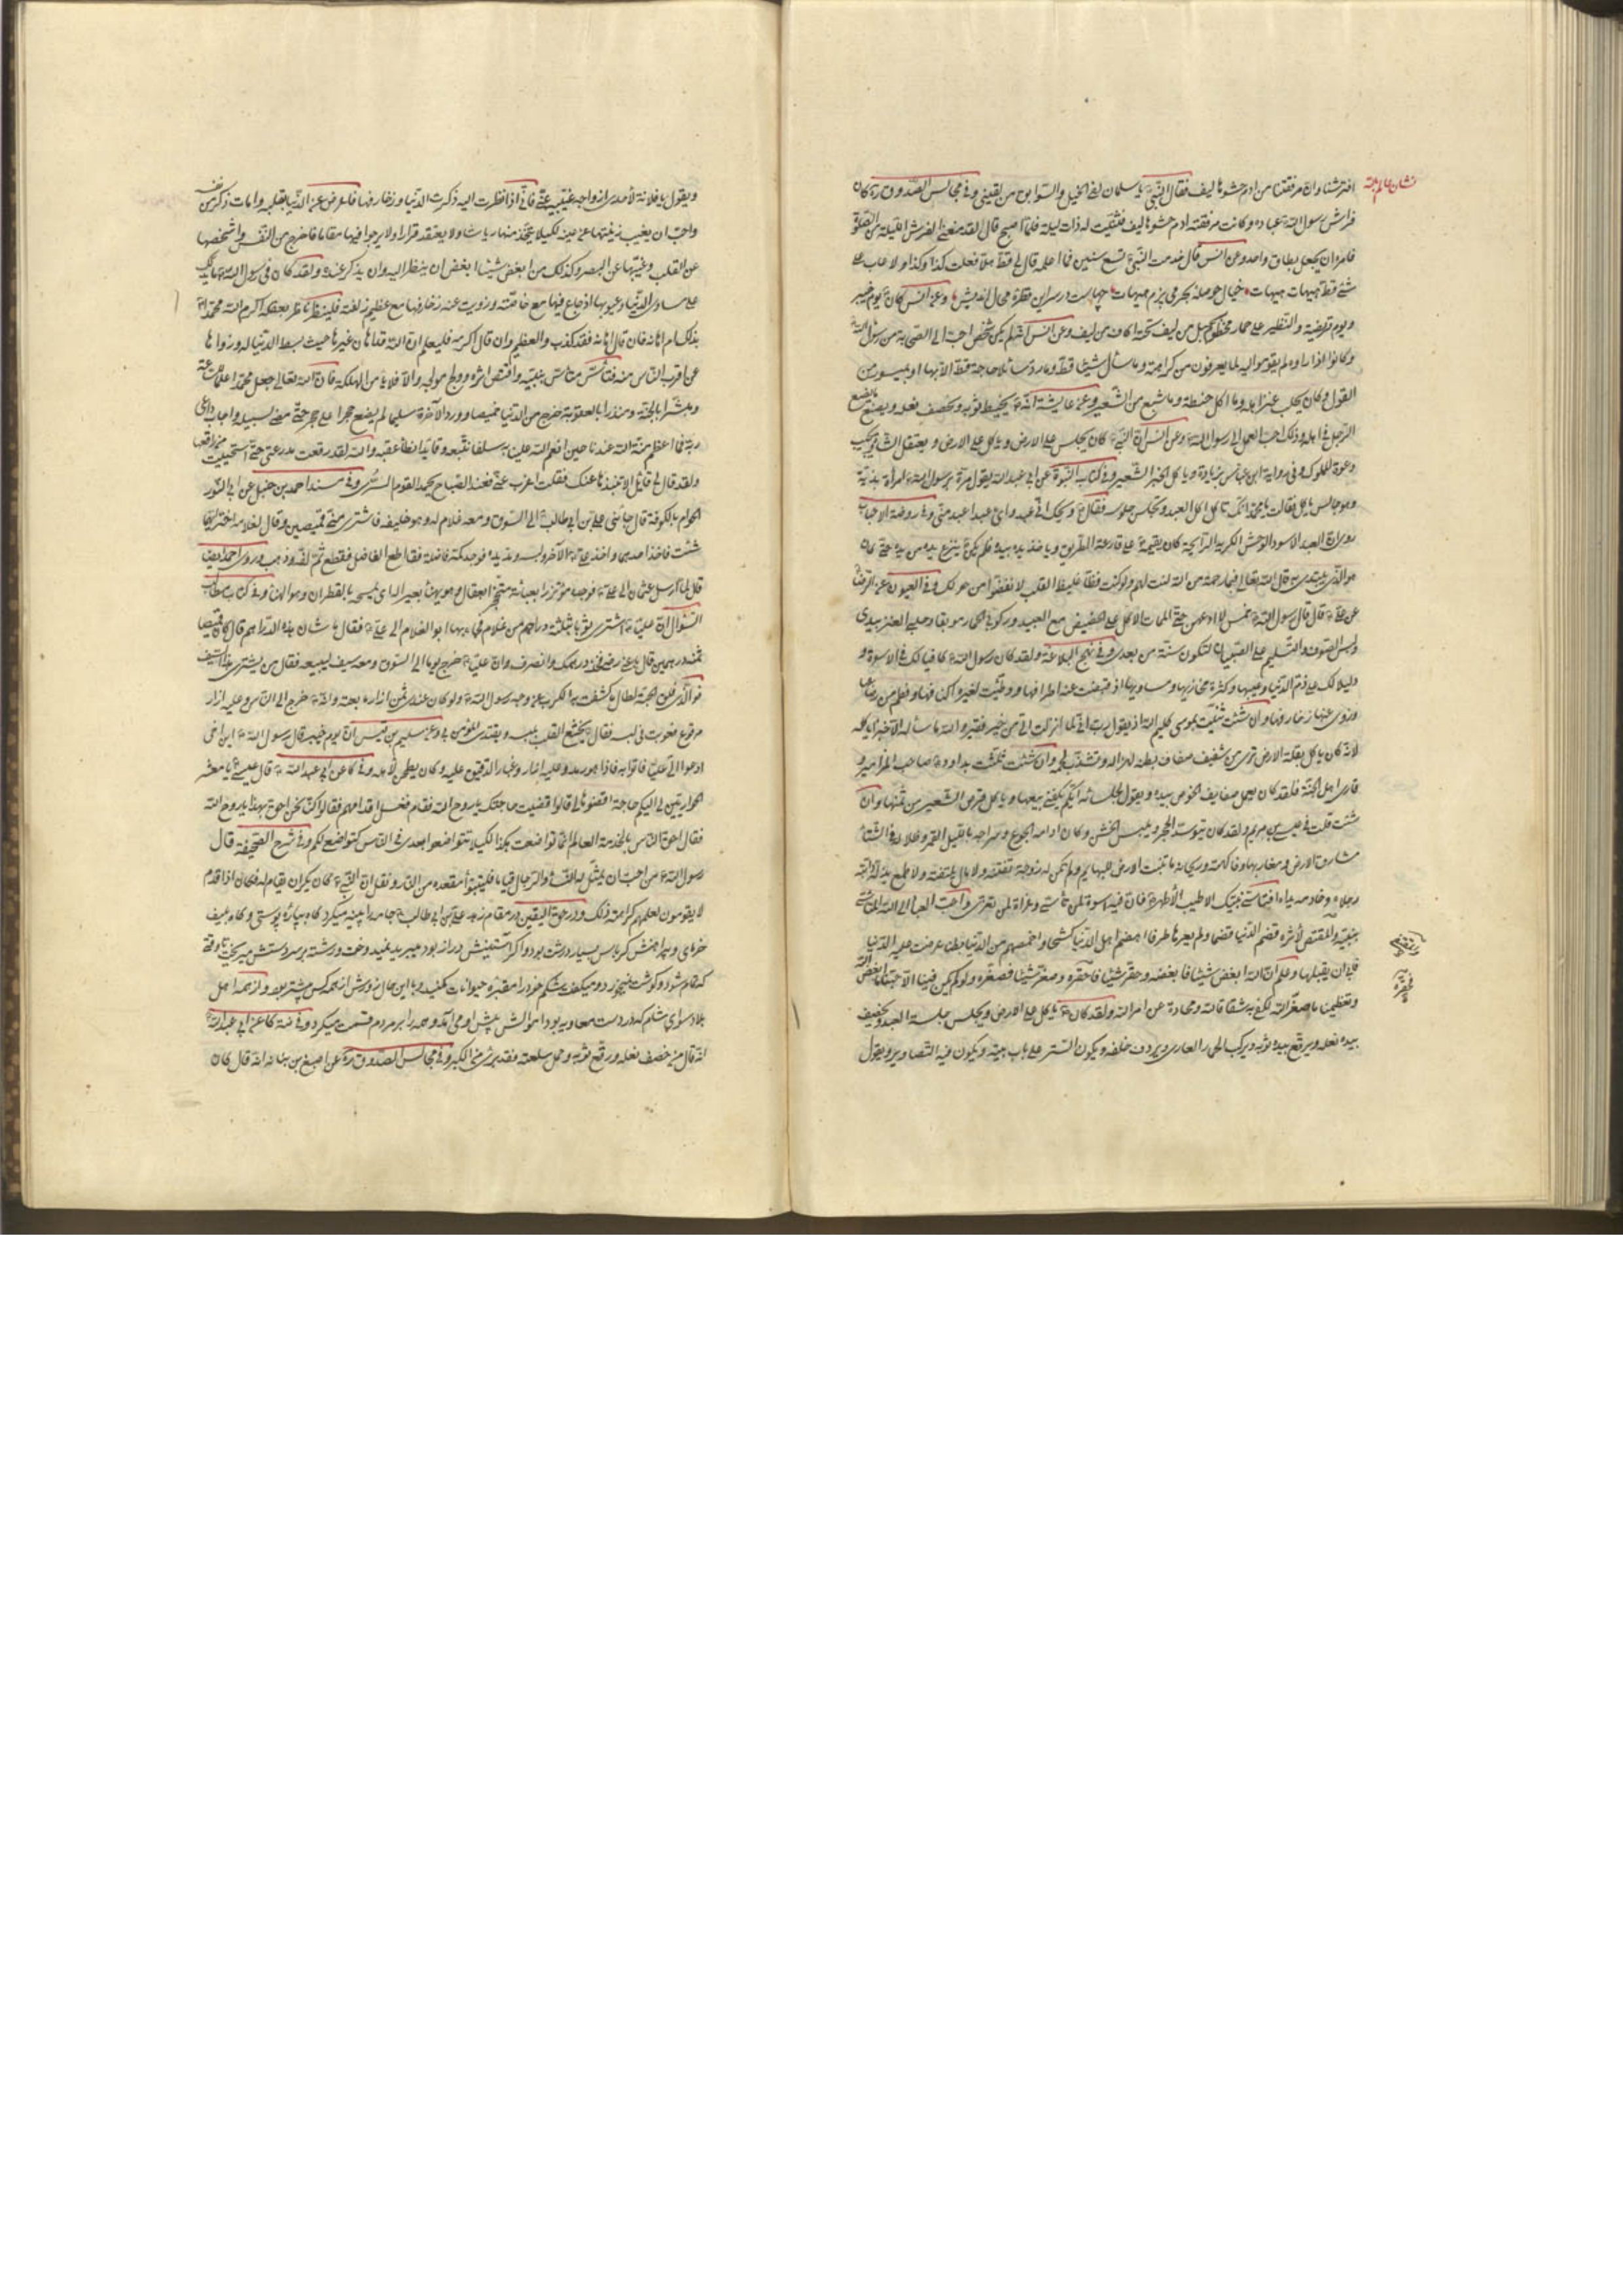 نشان عالم بقه
افترشناوان مرفقتنا من ادم حشوها ليف فقال النبي يا سلمان ان فى الخيل والسوابق من يقينى وفى مجالس الصدوق ره كان
فراش رسول الله عباءه وكانت مرفقته ادم حشوها ليف فثنيت له ذات ليلة فلما اصبح قال لقد منعنى الفراش الليلة من الصلوة
فامر ان يجعل بطاق واحد وعن انس قال خدمت النبى تسع سنين فما اعلمه قال لى قط هلا فعلت كذا وكذا ولا عاب على
شئ قط هيهات هيهات خيال حوصله بحر مى پزم هيهات چهاست در سر اين قطره محال انديش ها وعن انس كان يوم خيبر
ويوم قريضة والنظير على حمار مخطوم بحبل من ليف تحته اكاف من ليف وعن انس لم يكن شخص احب اليهم من رسول الله
وكانوا اذا راوه لم يقوموا اليه لما يعرفون من كراهيته وما سئل شيئا قط وما رد سائلا حاجة قط الا بها او بميسور من
القول وكان يحلب عنز اهله وما اكل حنطة وما شبع من الشعير وعن عايشة انه يخيط ثوبه ويخصف نعله ويصنع ما يصنع
الرجل فى اهله وذلك احب العمل الى رسول الله وعن انس ان النبى كان يجلس على الارض وياكل على الارض ويعتقل الشاة ويجيب
دعوة المملوك وفى رواية ابن عباس بزيادة وياكل الخبز الشعير وفى كتاب النبوة عن ابى عبد الله يقول مرت برسول الله امراة بذية
وهو جالس ياكل فقالت يا محمد انك تاكل اكل العبد وتجلس جلوسه فقال ويحك انى عبد واى عبد اعبد منى وفى روضة الاحباب
روى ان العبد الاسود الوحش الكريه الرايحة كان يقيمه على قارعة الطريق وياخذ يده بيده فلم يكن ينزع يده من يده حتى كان
هو الذى يبتدى قال الله تعالى فبما رحمة من الله لنت لهم ولو كنت فظا غليظ القلب لانفضوا من حولك وفى العيون عن الرضا
عن على قال قال رسول الله خمس لا ادعهن حتى الممات الاكل على الحضيض مع العبيد وركوبى الحمار موكفا وحلبى العنز بيدى
ولبس الصوف والتسليم على الصبيان لتكون سنة من بعدى وفى نهج البلاغة ولقد كان رسول الله كافيا لك فى الاسوة و
دليلا لك على ذم الدنيا وعيبها وكثرة مخازيها ومساويها اذ قبضت عنه اطرافها ووطئت لغيره اكنافها وفطم من رضاعها
وزوى عنها زخارفها وان شئت ثنيت بموسى كليم الله اذ يقول رب انى لما انزلت الى من خير فقير والله ما ساله الا خبزا ياكله
لانه كان ياكل بقلة الارض ترى من شفيف صفاق بطنه لهزاله وتشذب لحمه وان شئت ثلثت بداود صاحب المزامير و
قارى اهل الجنة فلقد كان يعمل سفايف الخوص بيده ويقول لجلسائه ايكم يكفينى بيعها وياكل قرص الشعير من ثمنها وان
شئت قلت فى عيسى بن مريم ولقد كان يتوسد الحجر ويلبس الخشن وكان ادامه الجوع وسراجه بالليل القمر وظلاله فى الشتاء
مشارق الارض ومغاربها وفاكهته وريحانه ما تنبت الارض للبهايم ولم تكن له زوجة تفتنه ولا مال يلفته ولا طمع يذله دابته
رجلاه وخادمه يداه فتاس بنبيك الاطيب الاطهر فان فيه اسوة لمن تاسى وعزاء لمن تعزى واحب العباد الى الله المتاسى
بنبيه والمقتص لاثره قضم الدنيا قضما ولم يعرها طرفا اهضم اهل الدنيا كشحا واخمصهم من الدنيا بطنا عرضت عليه الدنيا
فابى ان يقبلها وعلم ان الله ابغض شيئا فابغضه وحقر شيئا فحقره وصغر شيئا فصغره ولو لم يكن فينا الا حبنا ما ابغض الله
وتعظيمنا ما صغر الله لكفى به شقاقا لله ومحادة عن امر الله ولقد كان ياكل على الارض ويجلس جلسة العبد ويخصف
بيده نعله ويرقع بيده ثوبه ويركب الحمار العارى ويردف خلفه ويكون الستر على باب بيته ويكون فيه التصاوير ويقول
ويقول يا فلانة لاحدى ازواجه غيبيه عنى فانى اذا نظرت اليه ذكرت الدنيا وزخارفها فاعرض عن الدنيا بقلبه وامات ذكرها من نفسه
واحب ان يغيب زينتها عن عينه لكيلا يتخذ منها رياشا ولا يعتقد قرارا ولا يرجو فيها مقاما فاخرج من النفس واشخصها
عن القلب وغيبها عن البصر وكذلك من ابغض شيئا ابغض ان ينظر اليه وان يذكر عنده ولقد كان فى رسول الله ما يدلك
على مساوى الدنيا وعيوبها اذ جاع فيها مع خاصته وزويت عنه زخارفها مع عظيم زلفته فلينظر ناظر بعقله اكرم الله محمدا
بذلك ام اهانه فان قال اهانه فقد كذب والعظيم وان قال اكرمه فليعلم ان الله قد اهان غيره حيث بسط الدنيا له وزواها
عن اقرب الناس منه فتاسى متاس بنبيه واقتص اثره وولج مولجه والا فلا يامن الهلكة فان الله تعالى جعل محمدا علما للساعة
ومبشرا بالجنة ومنذرا بالعقوبة خرج من الدنيا خميصا وورد الاخرة سليما لم يضع حجرا على حجر حتى مضى لسبيله واجاب داعى
ربه فما اعظم منة الله عندنا حين انعم الله علينا به سلفا نتبعه وقايدا نطا عقبه والله لقد رقعت مدرعتى حتى استحييت من راقعها
ولقد قال لى قايل الا تنبذها عنك فقلت اعزب عنى فعند الصباح يحمد القوم السرى وفى مسند احمد بن حنبل عن ابى النور
الحوام بالكوفة قال جائنى على بن ابى طالب الى السوق ومعه غلام له وهو خليفه فاشترى منى قميصين وقال لغلامه اختر ايهما
شئت فاخذ احدهما واخذ على الاخر ولبسه ومد يده فوجد كمه فاضلة فقال اقطع الفاضل فقطع ثم لفه وذهب وروى احمد ايضا
قال لما ارسل عثمان الى على فوجدوه مؤتزرا بعباءة محتجزا بعقال وهو يهنا بعيرا له اى يمسحه بالقطران وهو الهنا وفى كتاب مطالب
السؤال ان عليا اشترى ثوبا بثلثة دراهم من غلام فجاء بها ابو الغلام الى على فقال ما شان هذه الدراهم قال كان قميصا
ثمنه درهمين قال باعنى رضى فخذ دراهمك وانصرف وان عليا خرج يوما الى السوق ومعه سيف ليبيعه فقال من يشترى هذا السيف
فو الذى فلق الحبة لطال ما كشفت به الكرب عن وجه رسول الله ولو كان عندى ثمن ازار ما بعته وانه خرج الى الناس وعليه ازار
مرقوع فعوتب فى لبسه فقال يخشع القلب بلبسه ويقتدى المؤمن بى وعن سليم بن قيس ان يوم خيبر قال رسول الله اين اخى
ادعوا الى عليا فاتوا به فاذا هو رمد وعليه ازار وغبار الدقيق عليه وكان يطحن لاهله وفى كا عن ابى عبد الله قال عيسى يا معشر
الحواريين لى اليكم حاجة اقضوها لى قالوا قضيت حاجتك يا روح الله فقام فغسل اقدامهم فقالوا كنا نحن احق بهذا يا روح الله
فقال احق الناس بالخدمة العالم انما تواضعت هكذا لكيلا تتواضعوا بعدى فى الناس كتواضعى لكم وفى شرح الصحيفة قال
رسول الله من احب ان يمثل له النساء والرجال قياما فليتبوا مقعده من النار ونقل ان النبى كان يكره ان يقام له فكان اذا قدم
لا يقومون لعلمهم كراهته ذلك ودر حق اليقين در مقام زهد على بن ابى طالب جامه را پينه ميكرد گاه بپاره پوستى وگاه بليف
خرماى وپيراهنش كرباس بسيار درشت بود واگر آستينش دراز بود ميبريد نميدوخت ورشته بر سر دستش ميريخت تا وقتى
كه تمام شود وگوشت نميخورد وميگفت شكم خود را مقبره حيوانات مكنيد وبا اين حال زورش از همه كس بيشتر بود واز همه اهل
بلاد سواى شام كه در دست معاويه بود اموالش پيش او مى آمد وهمه را بر مردم قسمت ميكرد وفى ضه كا عن ابى عبد الله
انه قال من خصف نعله ورقع ثوبه وحمل سلعته فقد برئ من الكبر وفى مجالس الصدوق ره عن اصبغ بن نباته انه قال كان